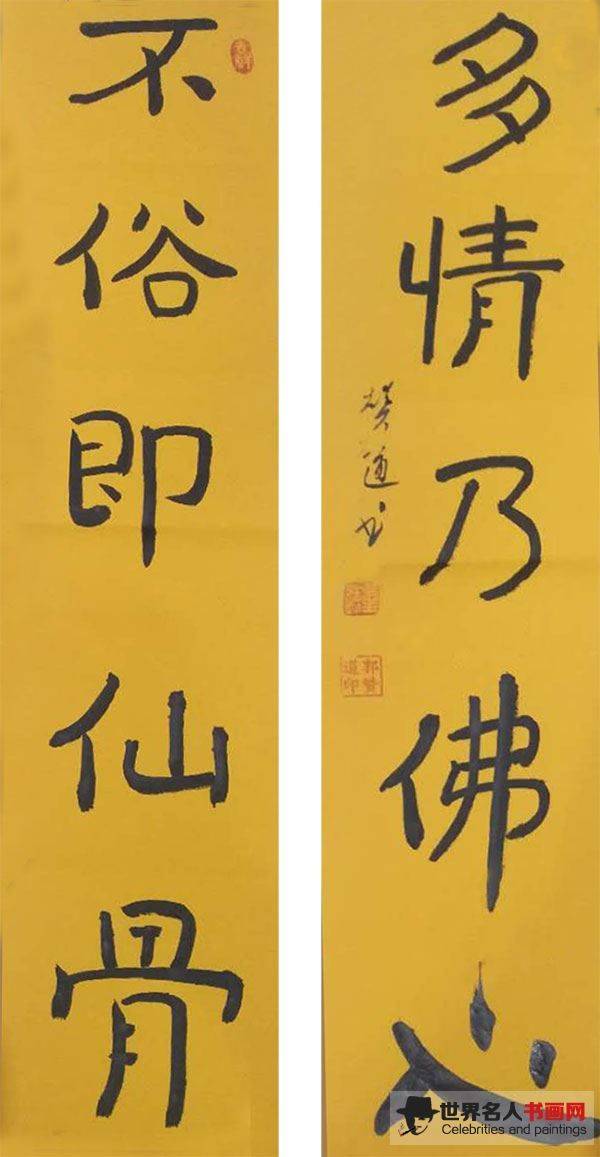 不俗即仙骨
多情乃佛心
贊道书
郭贊道印
世界名人书画网
Celebrities and paintings